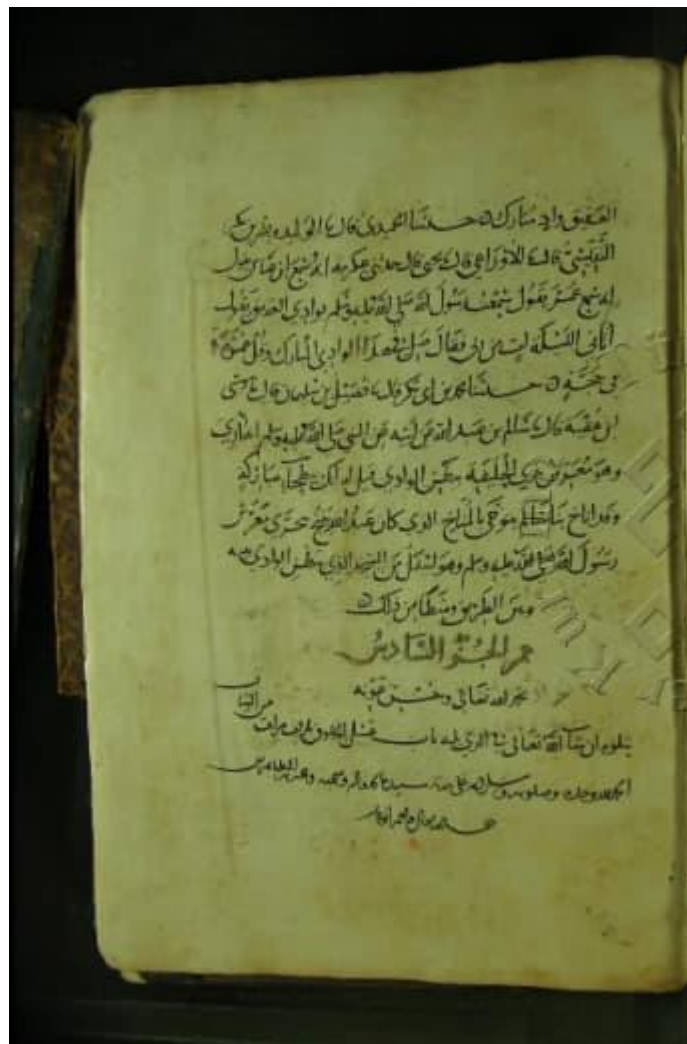 العقيق واد مبارك حدثنا الحميدي قال الوليد وبشر بن بكر
التنيسي قالا الاوزاعي قال يحيى قال حدثني عكرمة انه سمع ابن عباس يقول
انه سمع عمر يقول سمعت رسول الله صلى الله عليه وسلم بوادي العقيق يقول
اتاني الليلة ات من ربي فقال صل في هذا الوادي المبارك وقل عمرة
في حجة حدثنا محمد بن ابي بكر قال فضيل بن سليمان قال موسى
ابن عقبة قال سالم بن عبد الله عن ابيه عن النبي صلى الله عليه وسلم انه اري
وهو معرس بذي الحليفة ببطن الوادي قيل له انك ببطحاء مباركة
وقد اناخ بنا سالم يتوخى بالمناخ الذي كان عبد الله ينيخ يتحرى معرس
رسول الله صلى الله عليه وسلم وهو اسفل من المسجد الذي ببطن الوادي بينه
وبين الطريق وسطا من ذلك
الجزء السادس
بحمد الله تعالى وحسن عونه
يتلوه ان شاء الله تعالى في الذي يليه باب غسل الخلوق ثلاث مرات من الثياب
الحمد لله وحده وصلوته وسلامه على سيدنا محمد واله وصحبه